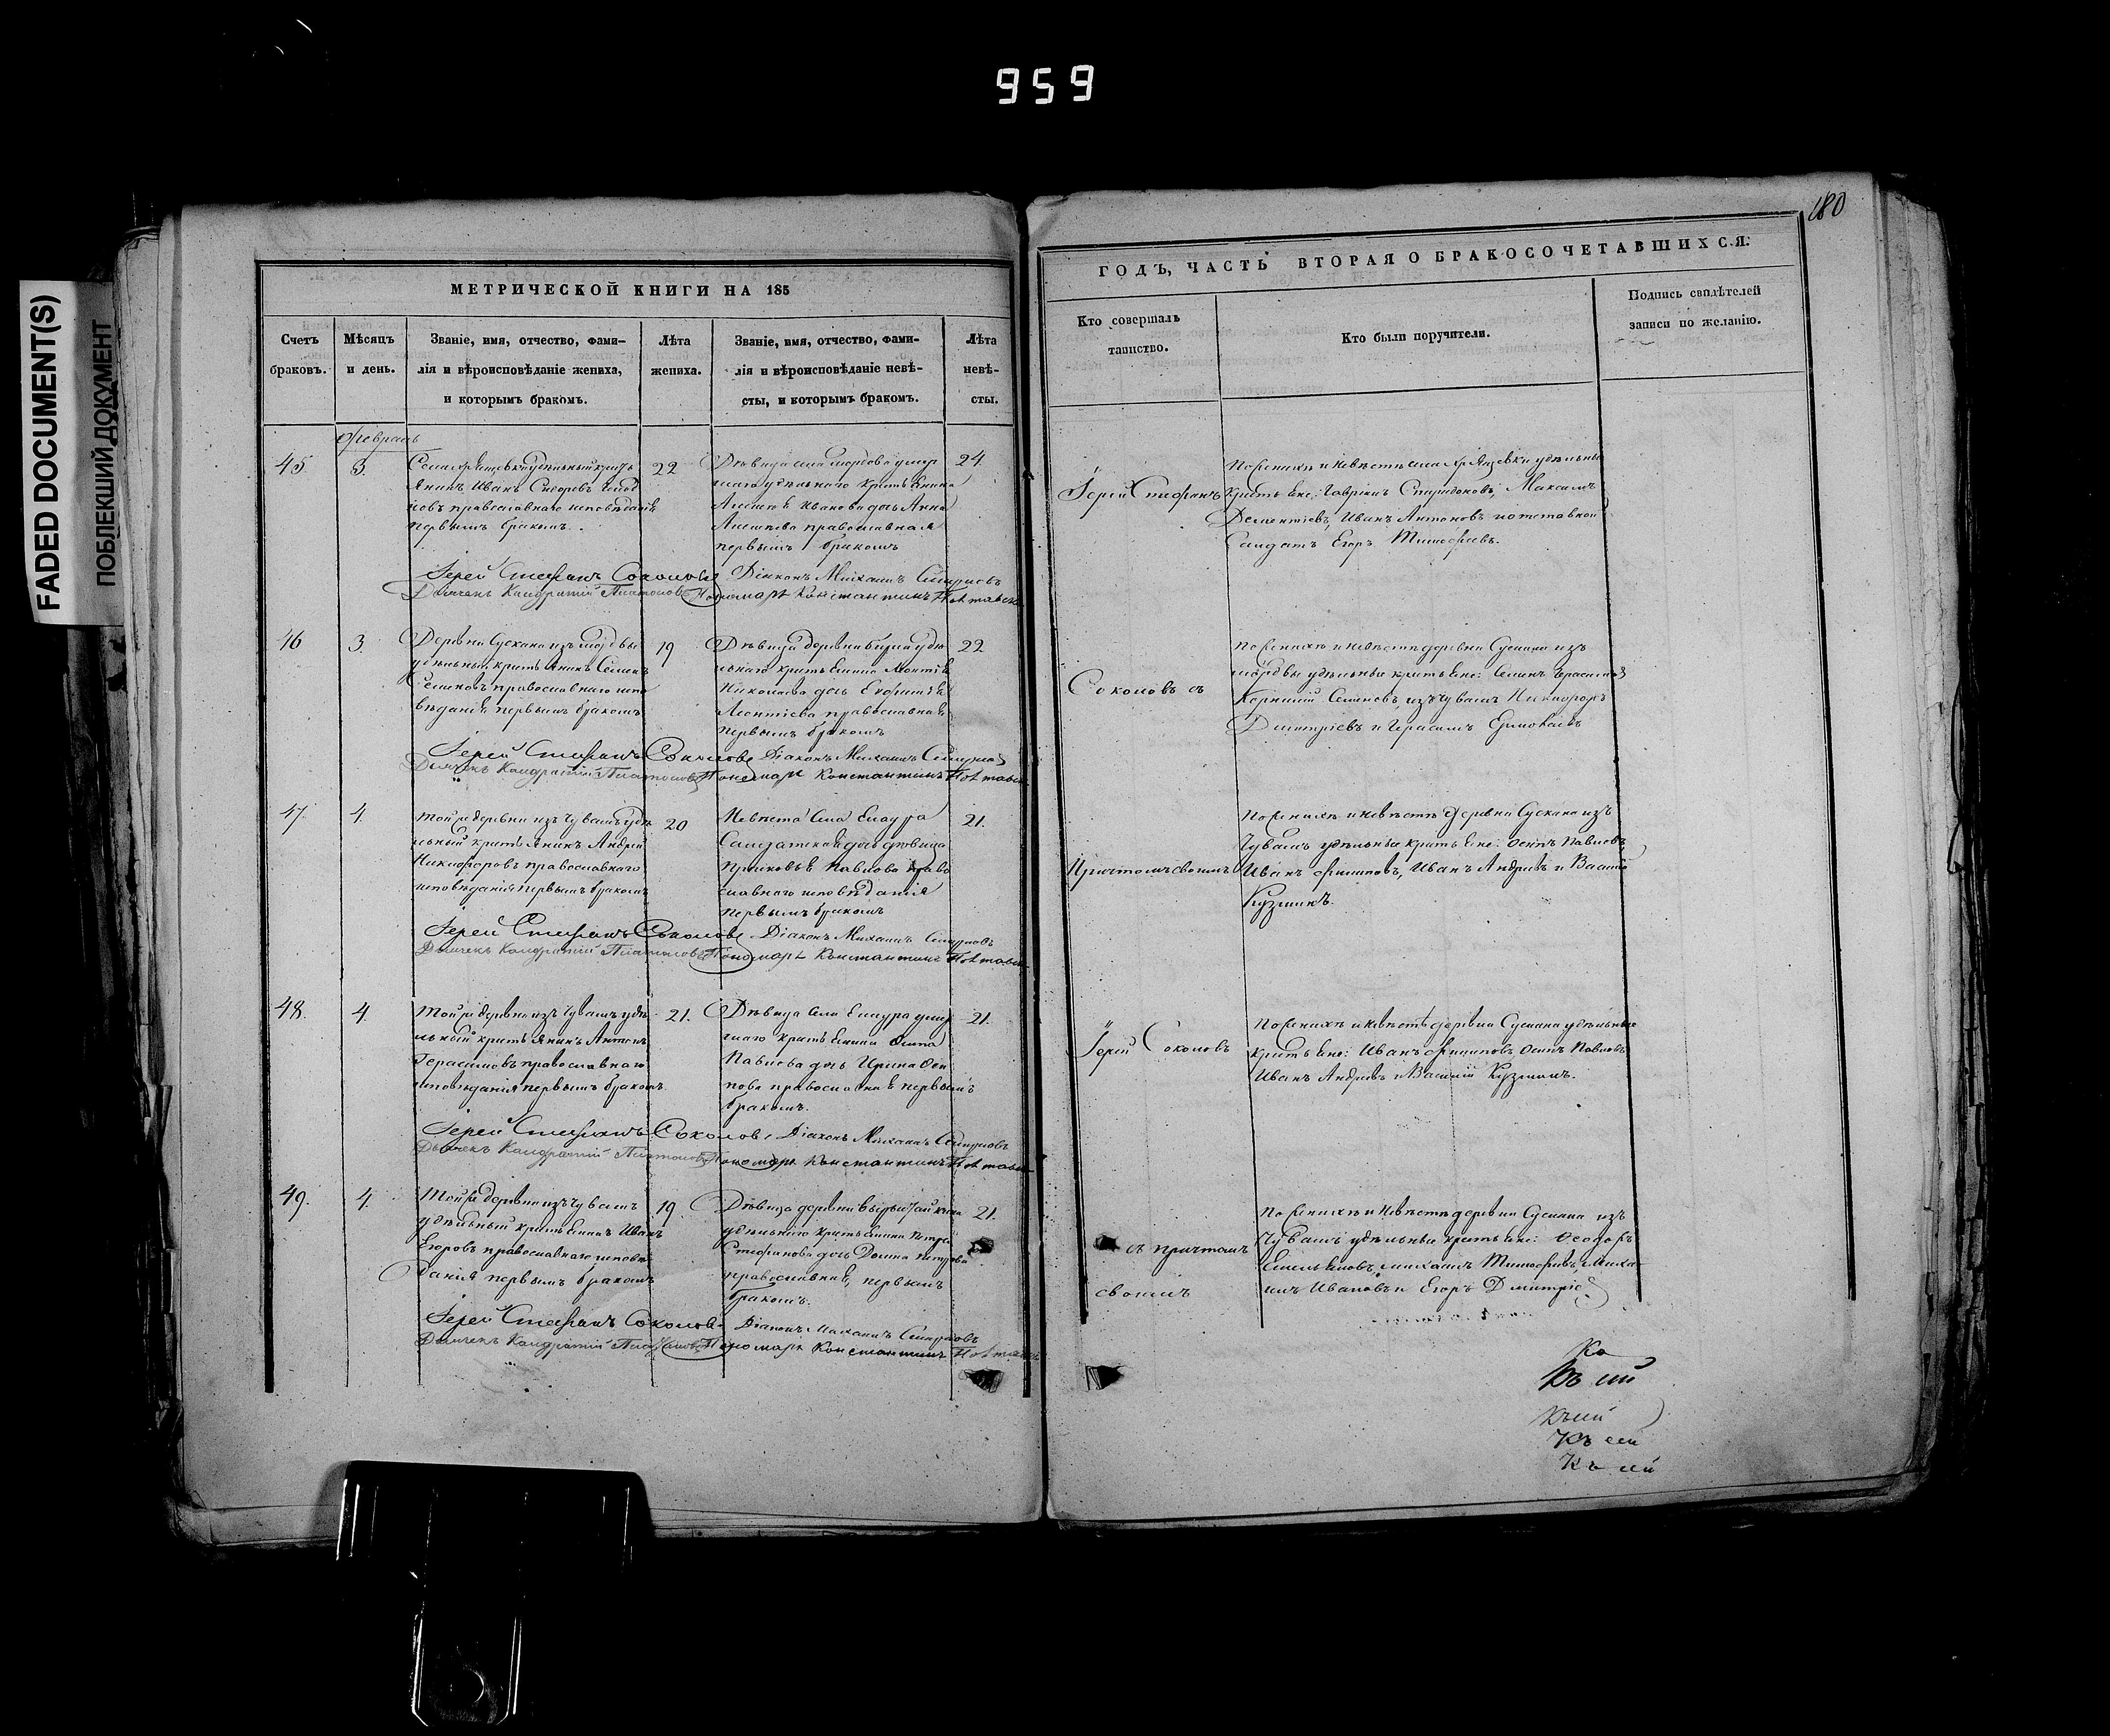 959
180
FADED DOCUMENT(S)
ПОБЛЕКШИЙ ДОКУМЕНТ
МЕТРИЧЕСКОЙ КНИГИ НА 185
Счетъ
браковъ.
Мѣсяцъ
и день.
Званіе, имя, отчество, фами-
лія и вѣроисповѣданіе жениха,
и которымъ бракомъ.
Лѣта
жениха.
Званіе, имя, отчество, фами-
лія и вѣроисповѣданіе невѣ-
сты, и которымъ бракомъ.
Лѣта
невѣ-
сты.
Февраль
45.
3.
удѣльный крестъ
янинъ Иванъ Сидоровъ
православнаго исповѣданія
первымъ бракомъ.
22
Дѣвица села умер
шаго удѣльнаго крестьянина
Алексѣя Иванова дочь Анна
Алексѣева православная
первымъ бракомъ
24.
Іерей Стефанъ Соколовъ Діаконъ Михаилъ Смирновъ
Дьячекъ Кондратій Платоновъ Пономарь Константинъ
46
3
Деревни Сускана изъ мордвы
удѣльный крестьянинъ Семенъ
Семеновъ православнаго испо
вѣданія первымъ бракомъ
19
Дѣвица деревни удѣ
льнаго крестьянина Леонтія
Николаева дочь Евфимія
Леонтіева православная
первымъ бракомъ
22
Іерей Стефанъ Соколовъ Діаконъ Михаилъ Смирновъ
Дьячекъ Кондратій Платоновъ Пономарь Константинъ
47.
4.
Той же деревни изъ Чувашъ удѣ
льный крестьянинъ Андрей
Никифоровъ православнаго
исповѣданія первымъ бракомъ
20
Невѣста села Еласура
Солдатская дочь дѣвица
Прасковья Павлова право
славнаго исповѣданія
первымъ бракомъ
21.
Іерей Стефанъ Соколовъ Діаконъ Михаилъ Смирновъ
Дьячекъ Кондратій Платоновъ Пономарь Константинъ
48.
4.
Той же деревни изъ Чувашъ удѣ
льный крестьянинъ Антонъ
Герасимовъ православнаго
исповѣданія первымъ бракомъ.
21.
Дѣвица села умер
шаго крестьянина Осипа
Павлова дочь Ирина Оси
пова православная первымъ
бракомъ.
21.
Іерей Стефанъ Соколовъ, Діаконъ Михаилъ Смирновъ
Дьячекъ Кондратій Платоновъ Пономарь Константинъ
49.
4.
Той же деревни изъ Чувашъ
удѣльный крестьянинъ Иванъ
Егоровъ православнаго исповѣ
данія первымъ бракомъ
19.
Дѣвица деревни
удѣльнаго крестьянина Петра
Стефанова дочь Домна Петрова
православная, первымъ
бракомъ.
21.
Іерей Стефанъ Соколовъ Діаконъ Михаилъ Смирновъ
Дьячекъ Кондратій Платоновъ Пономарь Константинъ
ГОДЪ, ЧАСТЬ ВТОРАЯ О БРАКОСОЧЕТАВШИХСЯ.
Кто совершалъ
таинство.
Кто были поручители.
Подпись свидѣтелей
записи по желанію.
Іерей Стефанъ
По женихѣ и невѣстѣ села удѣльные
крестьяне: Гавріилъ Спиридоновъ, Максимъ
Дементьевъ, Иванъ Антоновъ и отставной
Солдатъ Егоръ Тимофеевъ.
Соколовъ съ
По женихѣ и невѣстѣ деревни Сускана изъ
мордвы удѣльные крестьяне: Семенъ
Корнилій Семеновъ, изъ Чувашъ Никифоръ
Дмитріевъ и Герасимъ Ермолаевъ
Причтомъ своимъ
По женихѣ и невѣстѣ деревни Сускана изъ
Чувашъ удѣльные крестьяне: Осипъ Павловъ,
Иванъ Филиповъ, Иванъ Андреевъ и Василій
Кузминъ.
Іерей Соколовъ
По женихѣ и невѣстѣ деревни Сускана удѣльные
крестьяне: Иванъ Филиповъ, Осипъ Павловъ
Иванъ Андреевъ и Василій Кузминъ.
съ причтомъ
своимъ
По женихѣ и невѣстѣ деревни Сускана изъ
Чувашъ удѣльные крестьяне: Феодоръ
Емельяновъ, Михаилъ Тимофеевъ, Миха
илъ Ивановъ и Егоръ Дмитріевъ